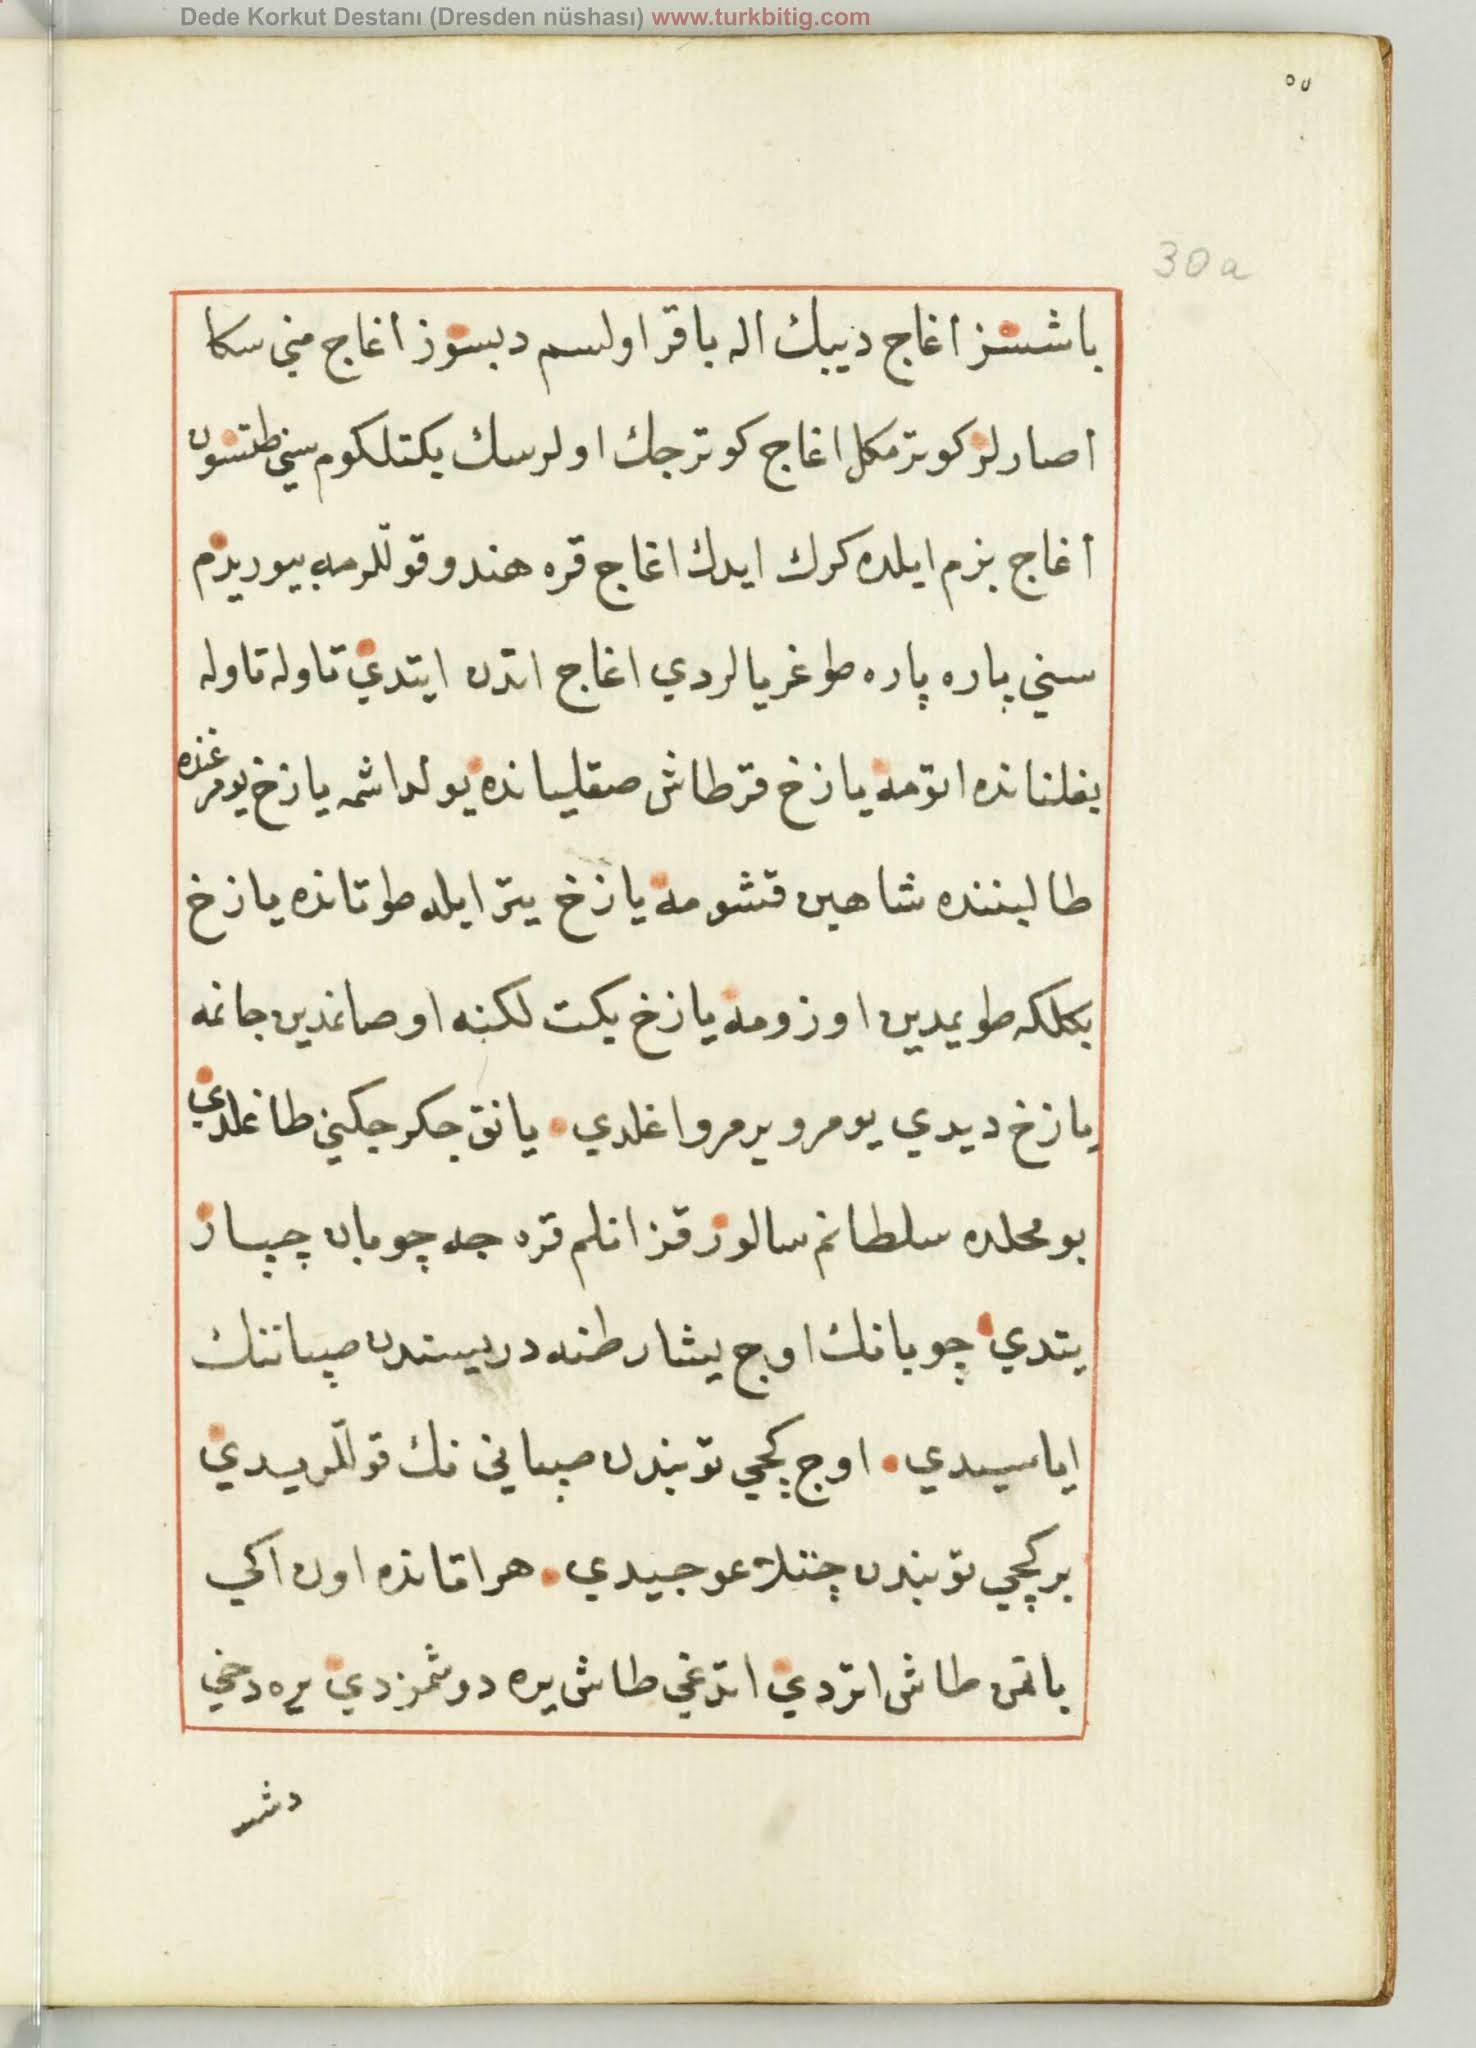 Dede Korkut Destanı (Dresden nüshası) www.turkbitig.com
٥٧
30a
باشسز أغاج ديبك اله باقر اولسم دبسوز أغاج مني سكا
أصارلر كوترمكل اغاج كوترجك اولرسك يكتلكوم سني طتسون
أغاج بزم ايلده كرك ايدك اغاج قره هندو قوللرمه بيوريدم
سني پاره پاره طوغريالردي اغاج اندن ايتدي تاوله تاوله
بغلنانده اتومه يازخ قرطاش صقليانده يولداشمه يازخ يومرغنده
طالبننده شاهين قشومه يازخ يتر ايله طوتانده يازخ
بكلكه طويمدين اوزومه يازخ يكت لكنه اوصانمدين جانمه
يازخ ديدي يومرو يرمرو اغلدي يانق جكرجكني طاغلدي
بو محلده سلطانم سالور قزانلم قره جه چوبان چپار
يتدي چوبانك اوچ يشار طنه دريسندن صپاننك
اياسيدي اوچ كچي توبندن صپاني نك قوللريدي
بر كچي توبندن چتلاغوجيدي هر اتانده اون اكي
باتمن طاش اتردي اتدغي طاش يره دوشمزدي يره دخي
دشـ